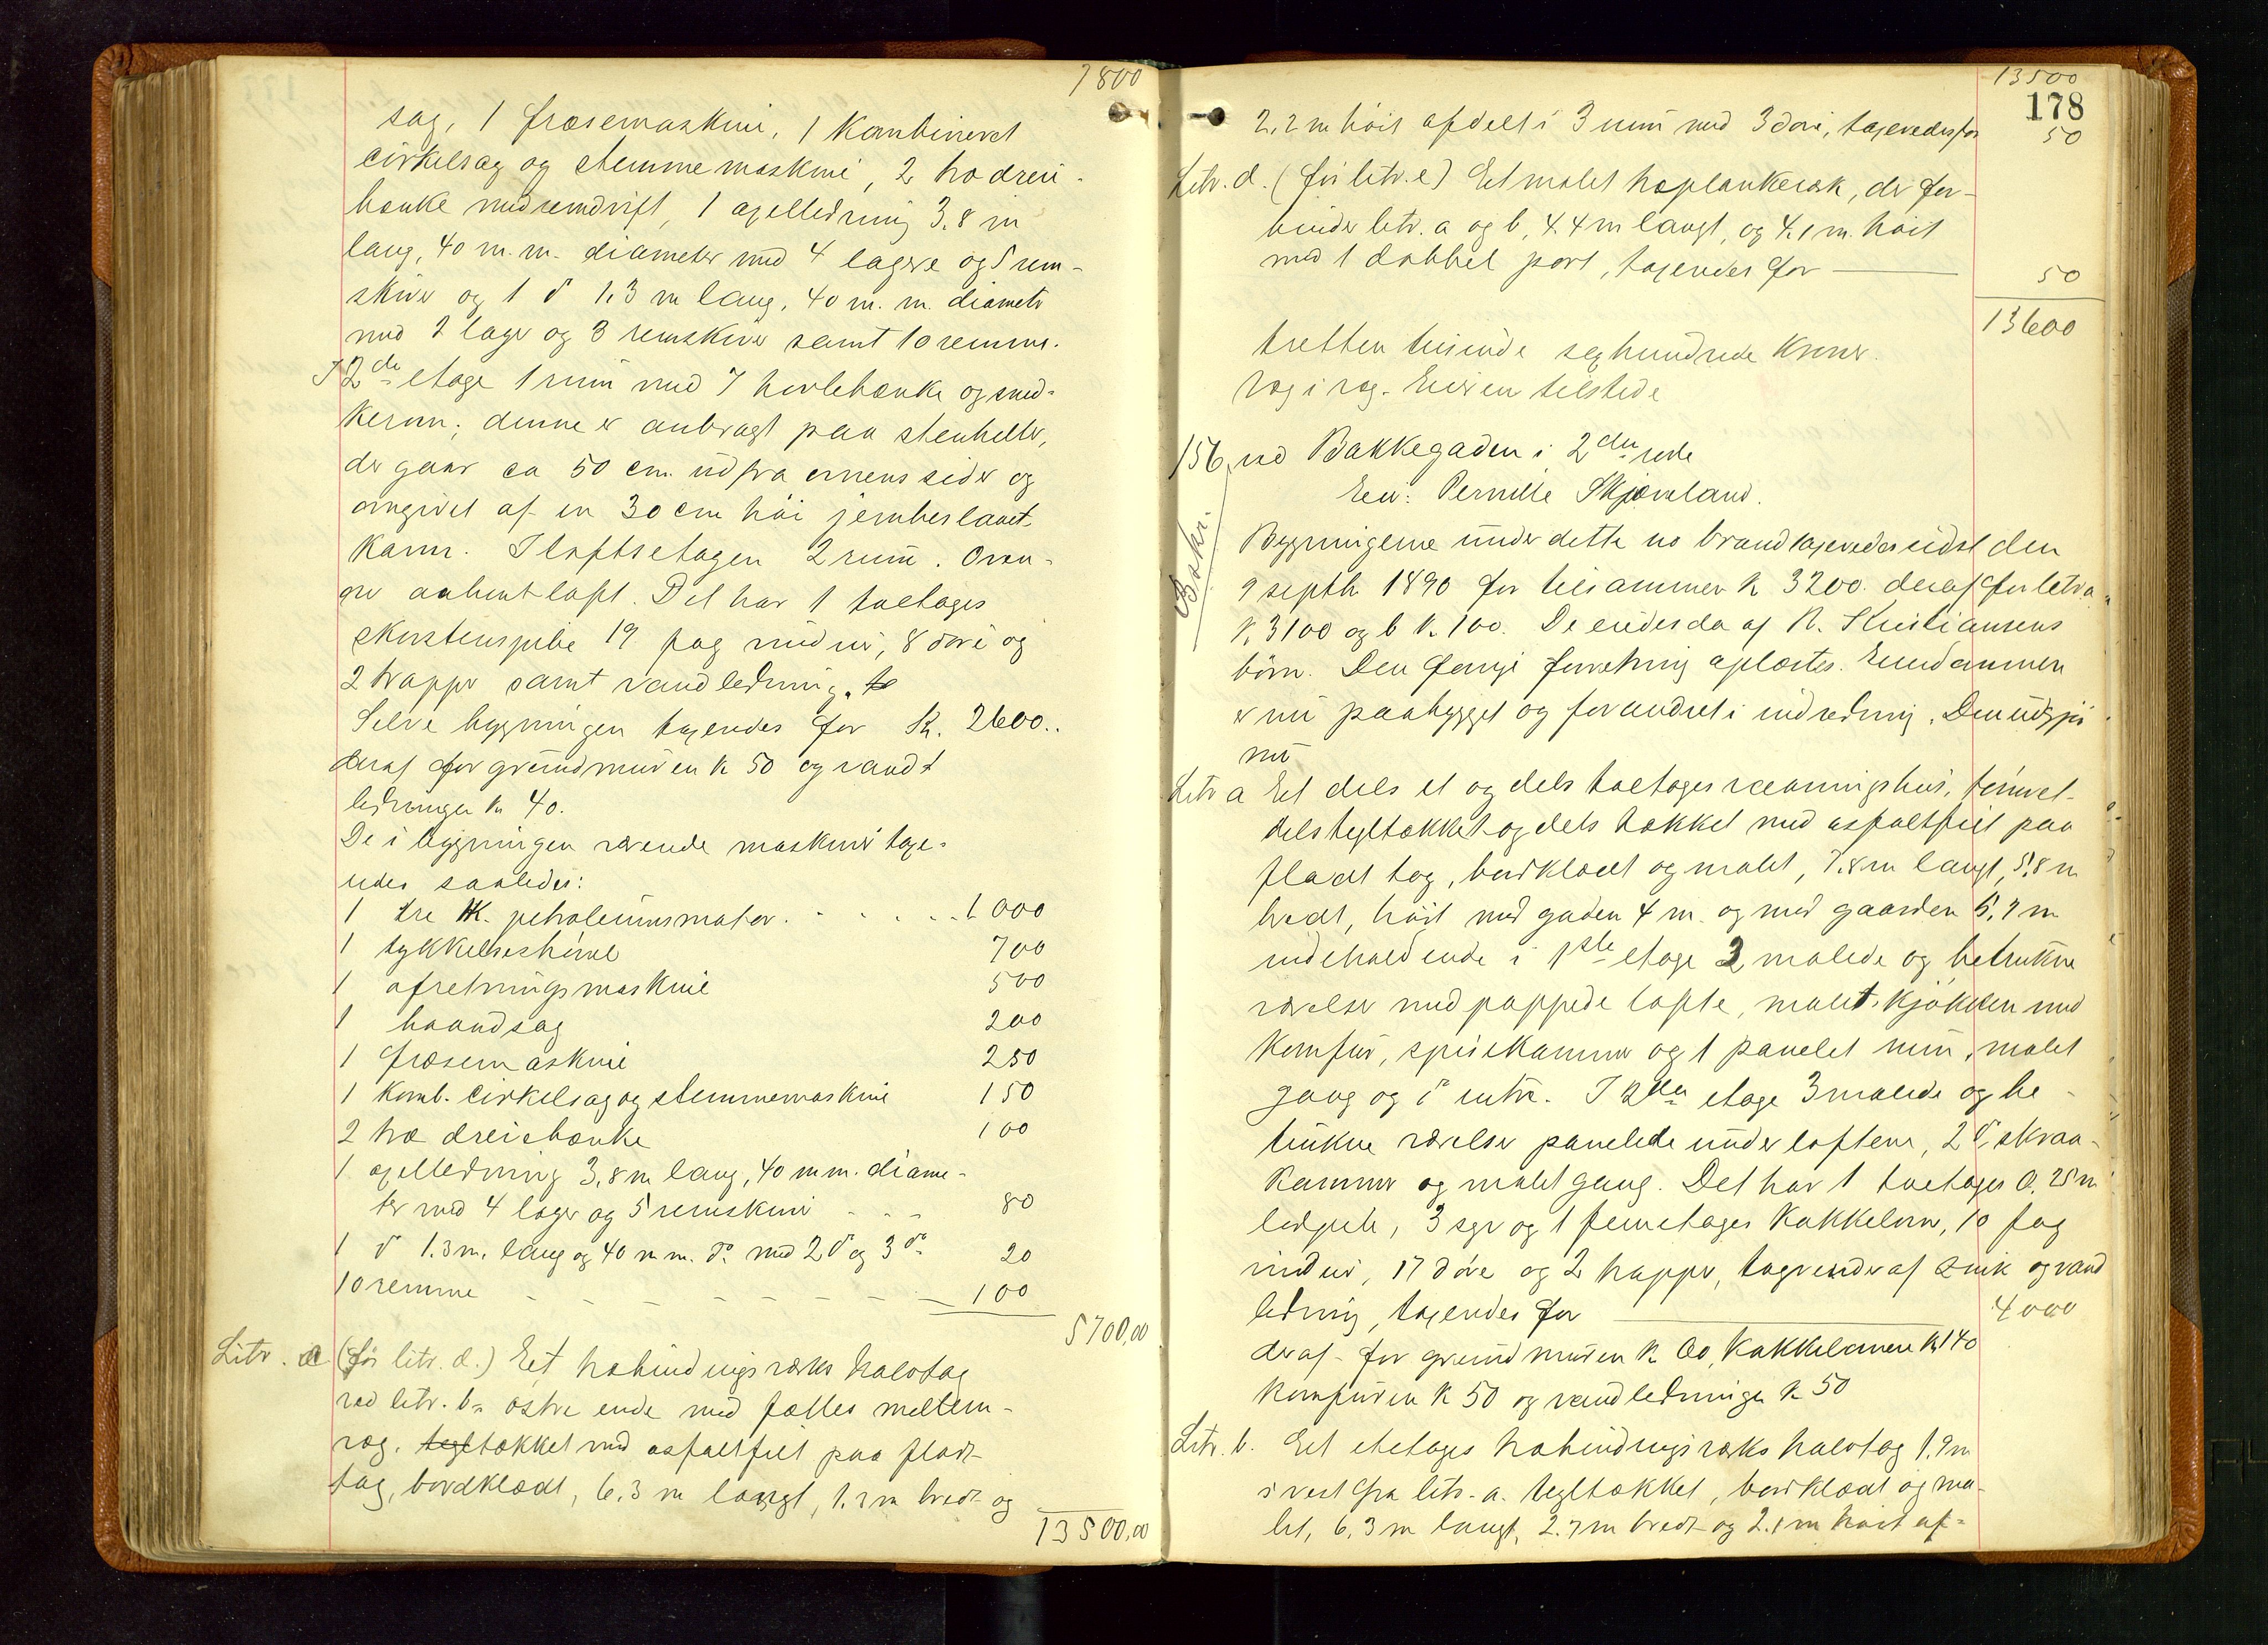 7800
sag, 1 fræsemaskine, 1 kombineret
cirkelsag og stemmemaskine, 2 trædreie-
bænke med remdrift, 1 axelledning 3,8 m
lang, 40 m.m. diameter med 4 lagere og 5 rem-
skiver og 1 do 1.3 m lang, 40 m.m. diameter
med 2 lager og 3 remskiver samt 10 remme.
I 2den etage 1 rum med 7 høvlebænke og sned-
kerovn; denne er anbragt paa stenheller,
der gaar ca 50 cm. ud fra ovnens sider og
omgivet af en 30 cm høi jernbeslaaet
karm. I loftsetagen 2 rum. Oven-
over aabent loft. Det har 1 toetages
skorstenspibe 19 fag vinduer, 8 døre og
2 trapper samt vandledning.
Selve bygningen taxeredes for K. 2600..
deraf for grundmuren k 50 og vandt
ledningen k 40.
De i bygningen værende maskiner taxe-
redes saaledes:
1 tre HK. petroleumsmotor. - - - - - 1000
1 tykkelseshøvel 700
1 afretningsmaskine 500
1 baandsag 200
1 fræsemaskine 250
1 komb. cirkelsag og stemmemaskine 150
2 træ dreiebænke 100
1 axelledning 3,8 m lang, 40 mm. diame-
ter med 4 lager og 5 remskiver - - - 80
1 do 1.3 m. lang og 40 m m. do med 2 do og 3 do 20
10 remme - - - - - - - - 100
5700,00
Litr. c (før litr. d.) Eet trabindingsværks halvtag
ved litr. bs østre ende med fælles mellem-
væg, tegltækket med asfaltfilt paa fladt
tag, bordklædt, 6,3 m langt, 1.2 m bredt og
13500,00
13500
178
2,2 m høit afdelt i 3 rum med 3 døre, taxeredes for 50
Litr. d. (før litr. e) Et malet træplankeværk, der for-
binder litr. a og b, 4.4 m langt, og 4.1 m. høit
med 1 dobbel port, taxeredes for 50
13600
tretten tusinde sexhundrede kroner.
væg i væg. Eieren tilstede
156, ved Bakkegaden i 2den rode
Eier: Pernille Skjæveland.
Beskr.
Bygningerne under dette no brandtaxeredes sidst den
9 septbr 1890 for tilsammen k 3200. deraf for litr a
k. 3100 og b k. 100. De eiedes da af N. Kristiansens
børn. Den forrige forretning oplæstes. Eiendommen
er nu paabygget og forandret i indredning. Den udgjør
nu
Litr a Eet dels et og dels toetages vaaningshus, tømret-
dels tegltækket og dels tækket med asfaltfilt paa
fladt tag, bordklædt og malet, 7.8 m langt, 5,8 m
bredt, høit mod gaden 4 m. og mod gaarden 5,7 m
indeholdende i 1ste etage 2 malede og betrukne
værelser med pappede lofte, malet kjøkken med
komfur, spisekammer og 1 panelet rum, malet
gang og do entre. I 2den etage 3 malede og be-
trukne værelser panelede under loftene, 2 do skraa-
kammer og malet gang. Det har 1 toetages 0,25 m
ledpibe, 3 og 1 femetages kakkelovn, 10 fag
vinduer, 17 døre og 2 trapper, tagrender af zink og vand
ledning, taxeredes for 4000
deraf for grundmuren k 60, kakkelovnene k 140
komfuren k 50 og vandledningen k 50
Litr. b. Eet etetages trabindingsværks halvtag 1.9 m
i vest fra litr. a. tegltækket, bordklædt og ma-
let, 6,3 m langt, 2.7 m bredt og 2.1 m høit af-